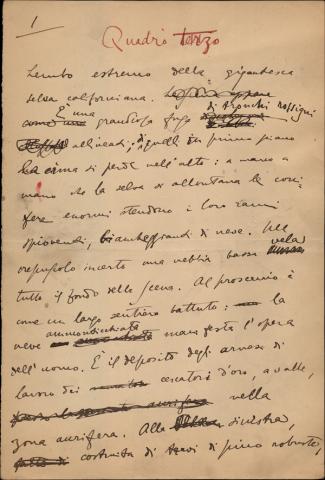 1
Quadro terzo
Lembo estremo della gigantesca
selva californiana.
È una grandiosa fuga di tronchi rossigni
allineati; di quelli in primo piano
la cima si perde nell'alto: a mano a
mano che la selva si allontana le coni-
fere enormi stendono i loro rami
spioventi, biancheggianti di neve. Nel
crepuscolo incerto una nebbia bassa vela
tutto il fondo della scena. Al proscenio è
come un largo sentiero battuto: la
neve ammonticchiata manifesta l'opera
dell'uomo. È il deposito degli arnesi di
lavoro dei cercatori d'oro, a valle,
nella
zona aurifera. Alla sinistra,
costruita di travi di pino robuste,